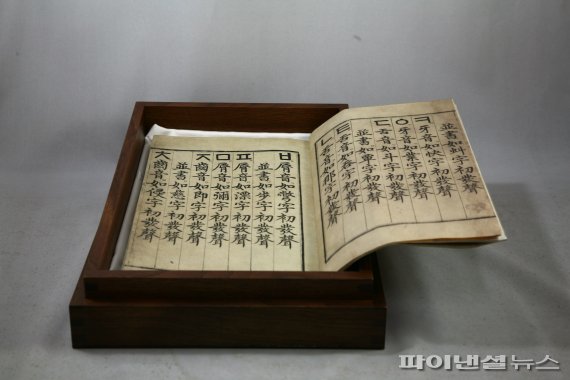 並書如虯字初發聲
ㅋ牙音如快字初發聲
ㆁ牙音如業字初發聲
ㄷ舌音如斗字初發聲
並書如覃字初發聲
ㅌ舌音如呑字初發聲
ㄴ舌音如那字初發聲
ㅂ脣音如彆字初發聲
並書如步字初發聲
ㅍ脣音如漂字初發聲
ㅁ脣音如彌字初發聲
ㅈ齒音如即字初發聲
並書如慈字初發聲
ㅊ齒音如侵字初發聲
파이낸셜뉴스